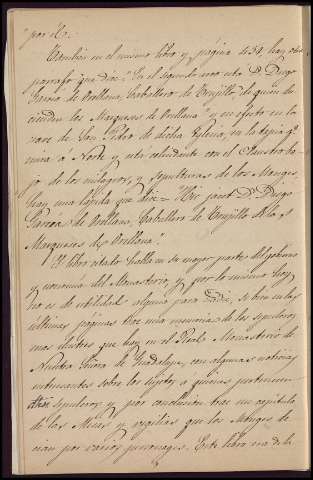 por R.
Tambien en el mismo libro y página 431 hay otro
parrafo que dice: "En el segundo arco esta D. Diego
Garcia de Orellana, Caballero de Trujillo, de quien de-
cienden los Marqueses de Orellana" y en efecto en la
nave de San Pedro de dicha Yglesia, en la tapia qᵉ
mira a Norte y está colindante con el Claustro ba-
jo de los milagros, y sepulturas de los Monges,
hay una lápida que dice = "Hic jacet D. Diego
Garcia de Orellana, Caballero de Trujillo de los
Marqueses de Orellana".
El libro citado habla en su mayor parte del gobierno
y economia del Monasterio, y por lo mismo hoy
no es de utilidad alguna para nadie, si bien en las
últimas páginas trae una memoria de los sepulcros
mas ilustres que hay en el Real Monasterio de
Nuestra Señora de Guadalupe, con algunas noticias
interesantes sobre los sujetos a quienes pertenecen
sepulcros y por conclusion trae un capitulo
de las Misas y vigilias que los Monges de-
cian por varios personages. Este libro era de la